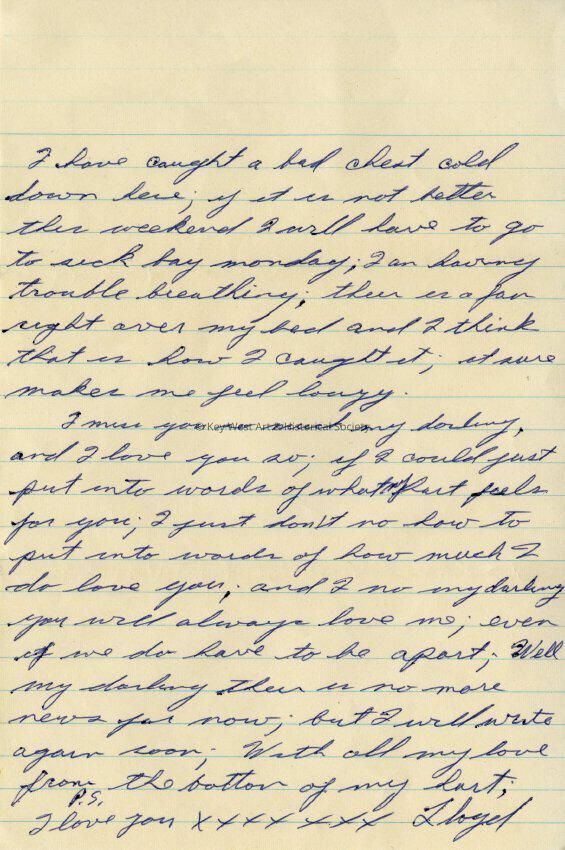 I have caught a bad chest cold
down here; if it is not better
this weekend I will have to go
to sick bay monday; I am having
trouble breathing; ther is a fan
right over my bed and I think
that is how I caught it; it sure
makes me feel louzy.
I miss you my darling,
© Key West Art & Historical Society
and I love you so; if I could just
put into words of what my hart feels
for you; I just don't no how to
put into words of how much I
do love you; and I no my darling
you will always love me; even
if we do have to be apart; Well
my darling ther is no more
news for now; but I will write
again soon; With all my love
from the bottom of my hart;
P.S.
I love you x x x x x x x x Lloyd